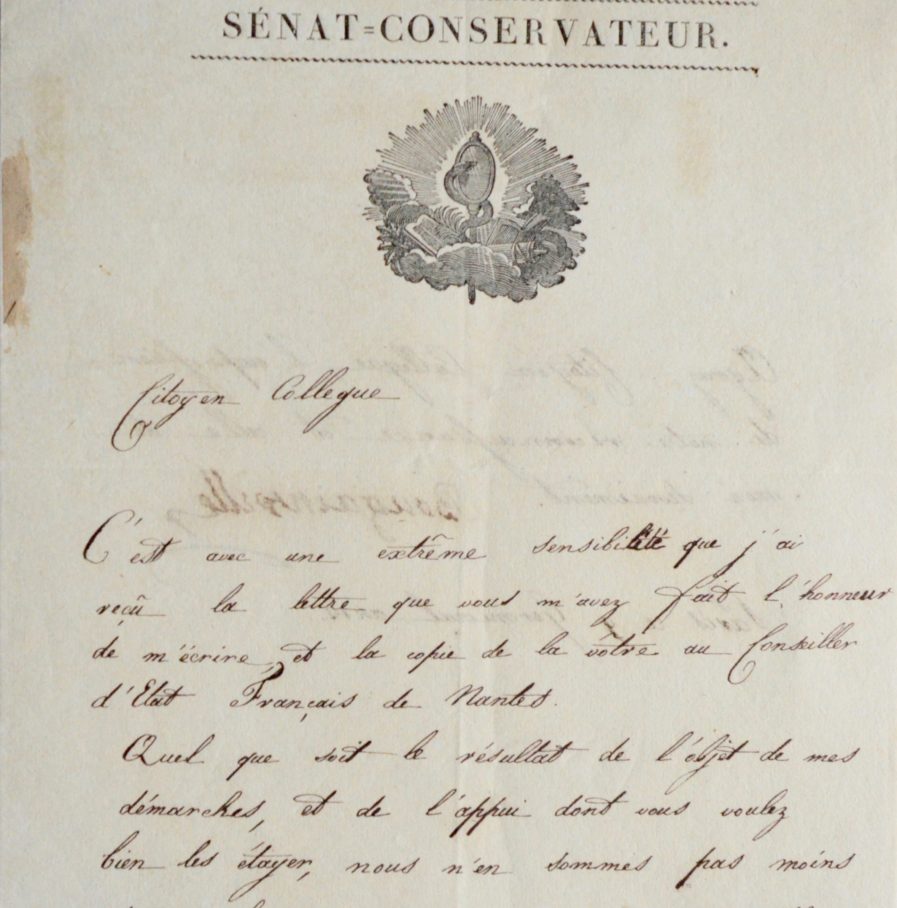 SÉNAT=CONSERVATEUR.
Citoyen Collegue
C'est avec une extrême sensibilité que j'ai
reçû la lettre que vous m'avez fait l'honneur
de m'écrire, et la copie de la vôtre au Conseiller
d'Etat Français de Nantes.
Quel que soit le résultat de l'objet de mes
démarches, et de l'appui dont vous voulez
bien les étayer, nous n'en sommes pas moins